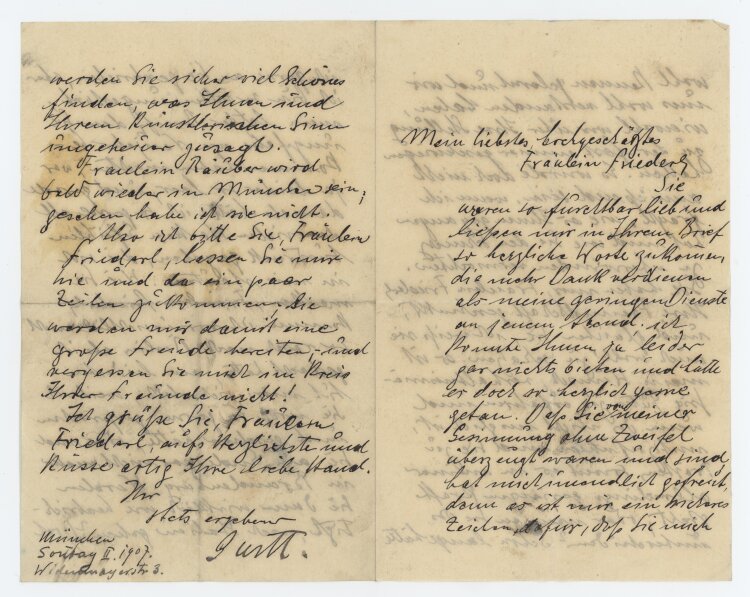 Mein liebstes, hochgeschätztes
Fräulein Friederl,
Sie
waren so furchtbar lieb und
ließen mir in Ihrem Brief
so herzliche Worte zukommen,
die mehr Dank verdienen
als meine geringen Dienste
an jenem Abend. ich
konnte Ihnen ja leider
gar nichts bieten und hätte
es doch so herzlich gerne
getan. Daß Sie von meiner
Gesinnung ohne Zweifel
überzeugt waren und sind,
hat mich unendlich gefreut,
denn es ist mir ein sicheres
Zeichen dafür, daß Sie mich
werden Sie sicher viel Schönes
finden, was Ihnen und
Ihrem künstlerischen Sinn
ungeheuer zusagt.
Fräulein Räuber wird
bald wieder in München sein;
gesehen habe ich sie nicht.
Also ich bitte Sie, Fräulein
Friederl, lassen Sie mir
hie und da ein paar
Zeilen zukommen, Sie
werden mir damit eine
große Freude bereiten, und
vergessen Sie mich im Kreis
Ihrer Freunde nicht!
Ich grüße Sie, Fräulein
Friederl, aufs Herzlichste und
küsse artig Ihre liebe Hand.
Ihr
stets ergebener
München
Sonntag II. 1907.
Widenmayerstr 3.